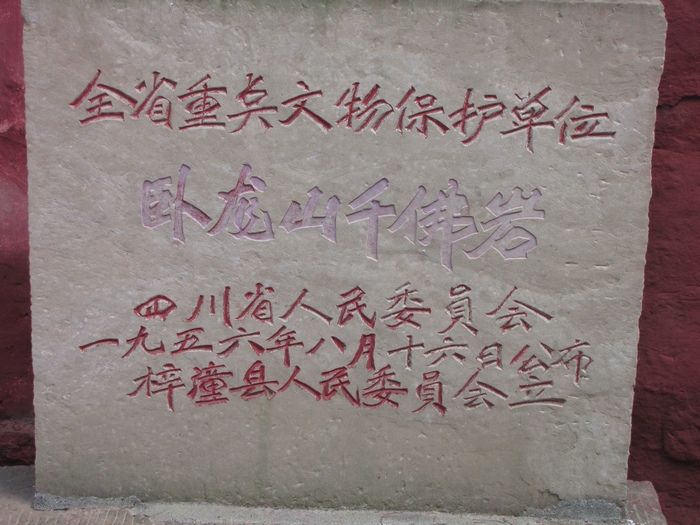 全省重点文物保护单位
卧龙山千佛岩
四川省人民委員会
一九五六年八月十六日公布
梓潼县人民委員会立